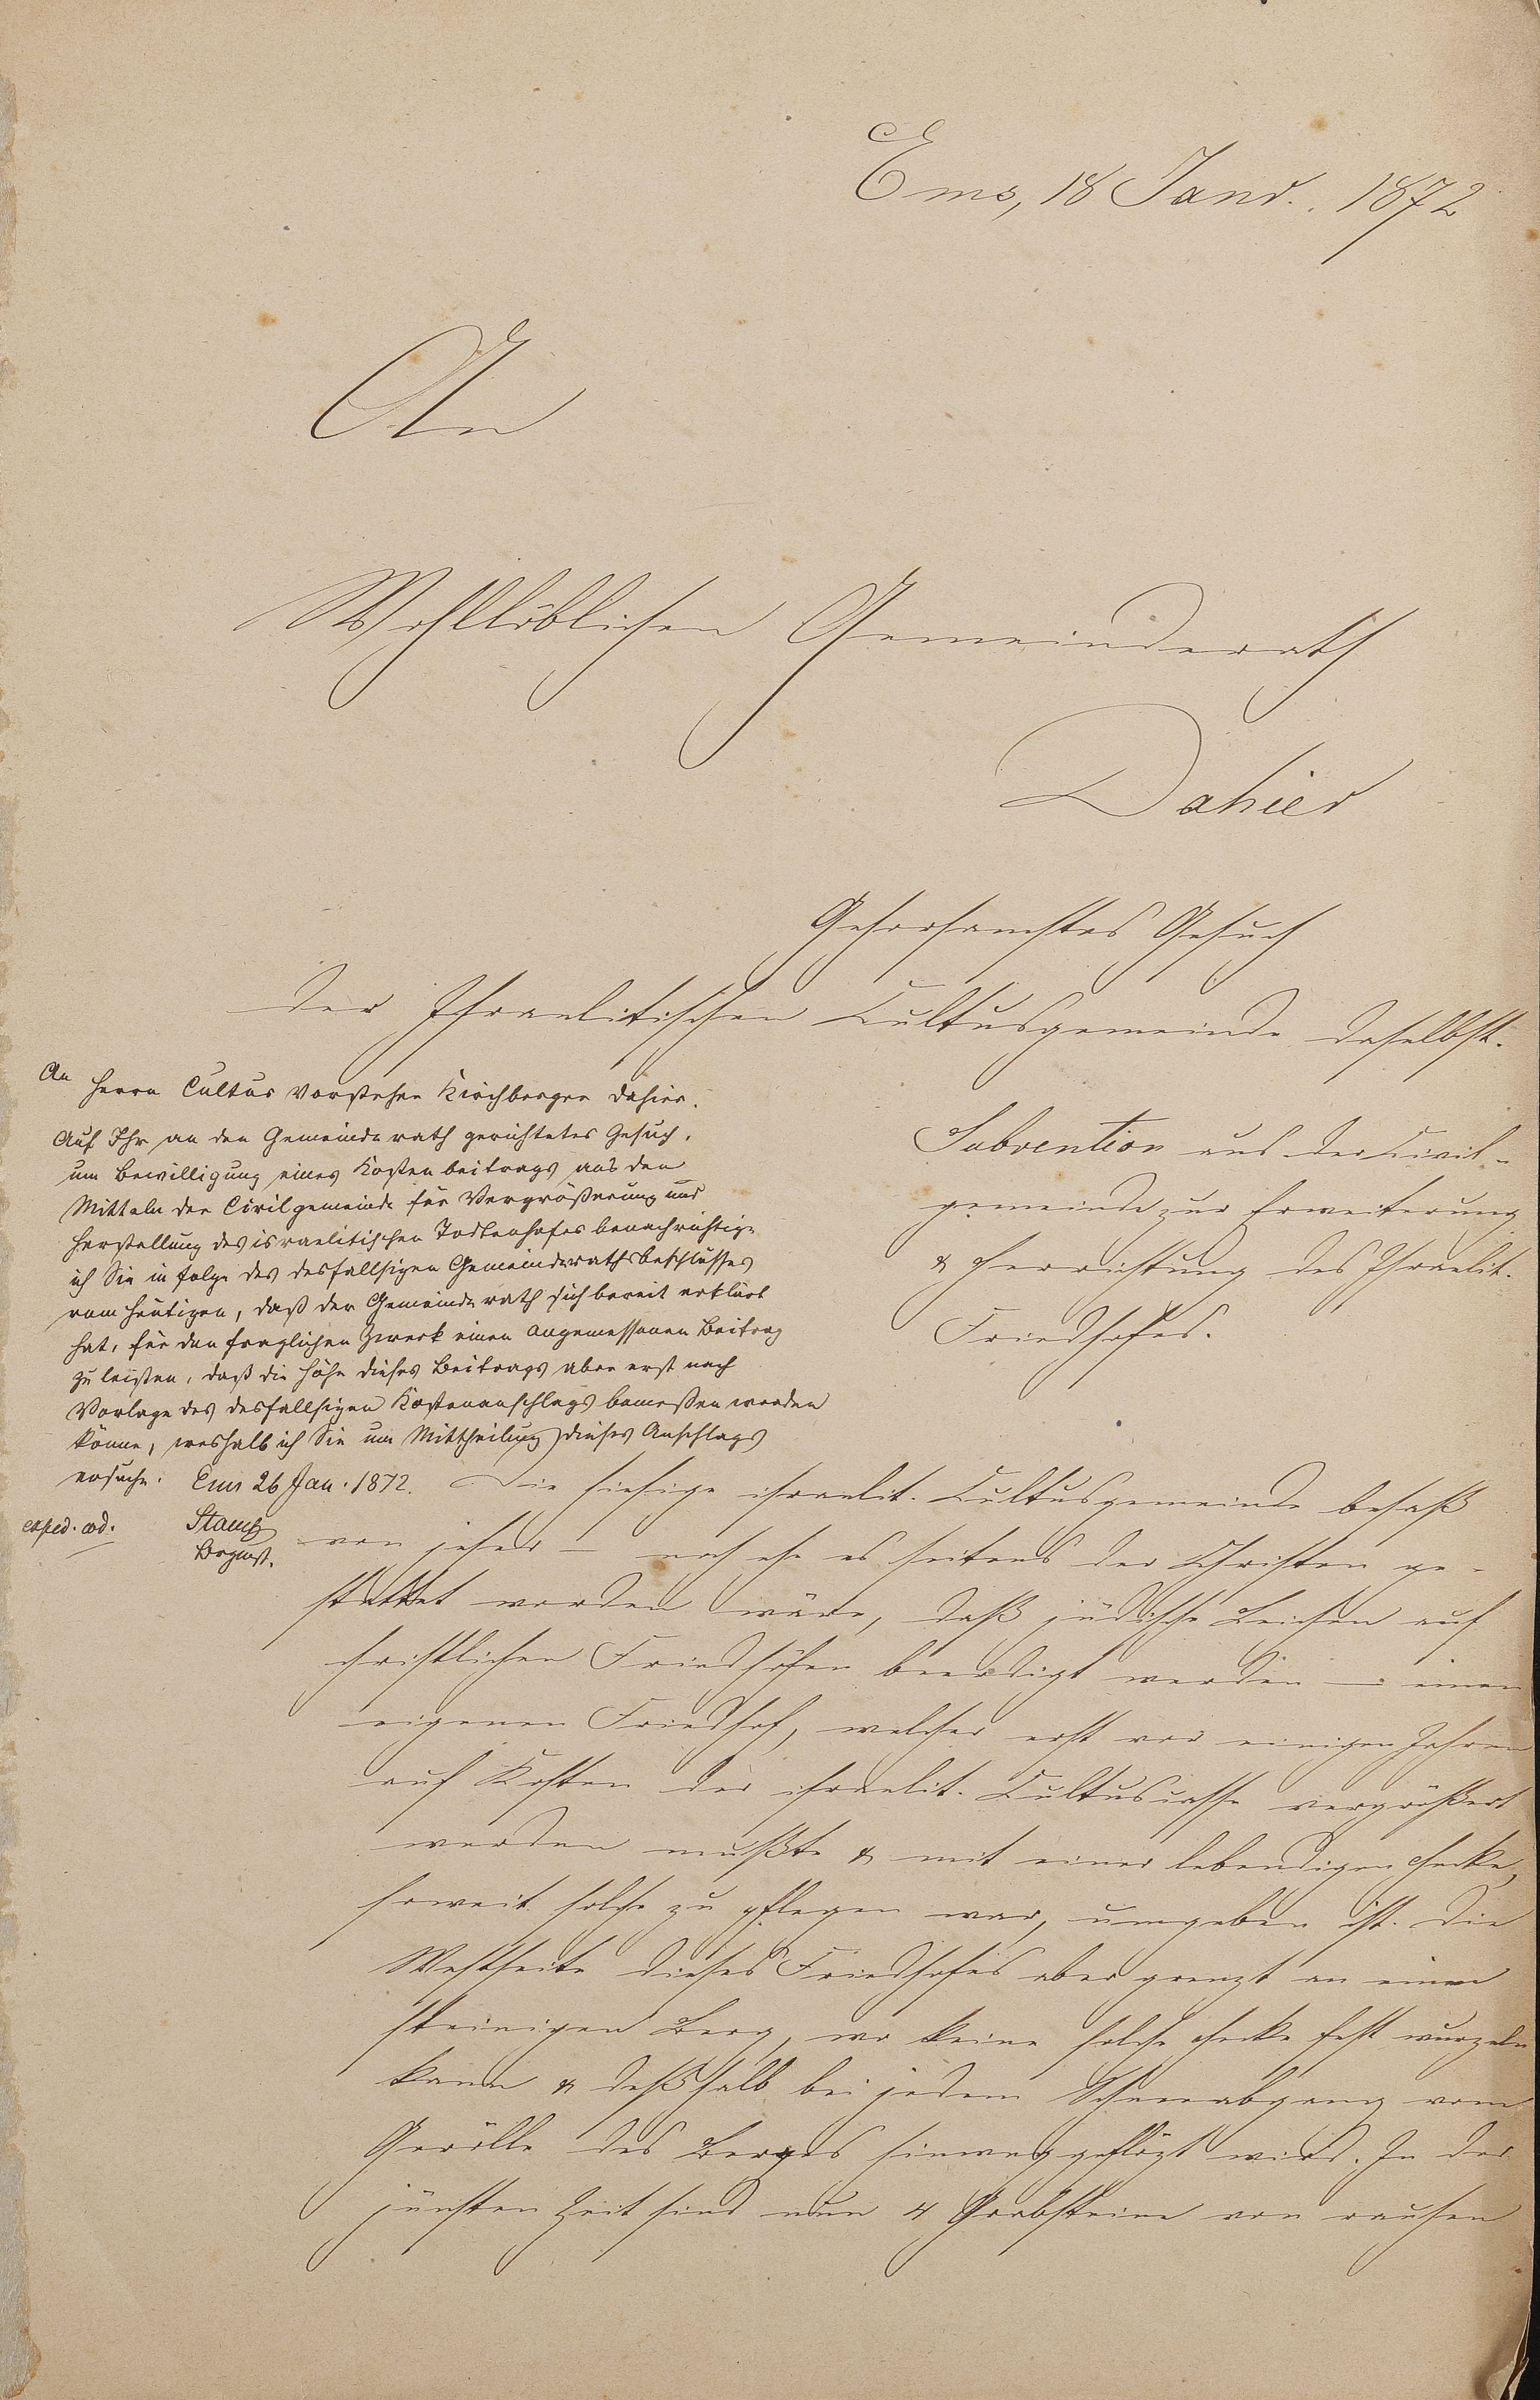 Ems, 18 Janr. 1872
An
Wohllöblichen Gemeinderath
Dahier
Gehorsamstes Gesuch
der Israelitischen Cultusgemeinde daselbst.
Subvention aus der Civil-
gemeinde zur Erweiterung
& Herrichtung des Israelit.
Friedhofes.
An Herrn Cultus Vorsteher Kirchberger dahier.
Auf Ihr an den Gemeinderath gerichtetes Gesuch,
um Bewilligung eines Kostenbeitrags aus den
Mitteln der Civilgemeinde für Vergrößerung und
Herstellung des israelitischen Todtenhofes benachrichtige
ich Sie in folge des desfallsigen Gemeinderathsbeschlusses
vom heutigen, daß der Gemeinderath sich bereit erklärt
hat, für den fraglichen Zweck einen angemessenen Beitrag
zu leisten, daß die Höhe dieses Beitrags aber erst nach
Vorlage des desfallsigen Kostenanschlags bemessen werden
könne, weshalb ich Sie um Mittheilung dieses Anschlags
ersuche. Ems 26 Jan. 1872.
exped. eod.
Brgmst.
Die hiesige israelit. Cultusgemeinde besaß
von jeher — noch ehe es seitens der Christen ge-
stattet worden wäre, daß jüdische Leichen auf
christlichen Friedhöfen beerdigt werden — einen
eigenen Friedhof, welcher erst vor einigen Jahren
auf Kosten der israelit. Cultuscasse vergrößert
werden mußte & mit einer lebendigen Hecke,
soweit solche zu pflegen war, umgeben ist. Die
Westseite dieses Friedhofes aber grenzt an einen
steinigen Berg, wo keine solche Hecke fest wurzeln
kann & deßhalb bei jedem Schneeabgang vom
Gerölle des Berges hinweggeflözt wird. In der
jünsten Zeit sind nun 4 Grabsteine von rauhen